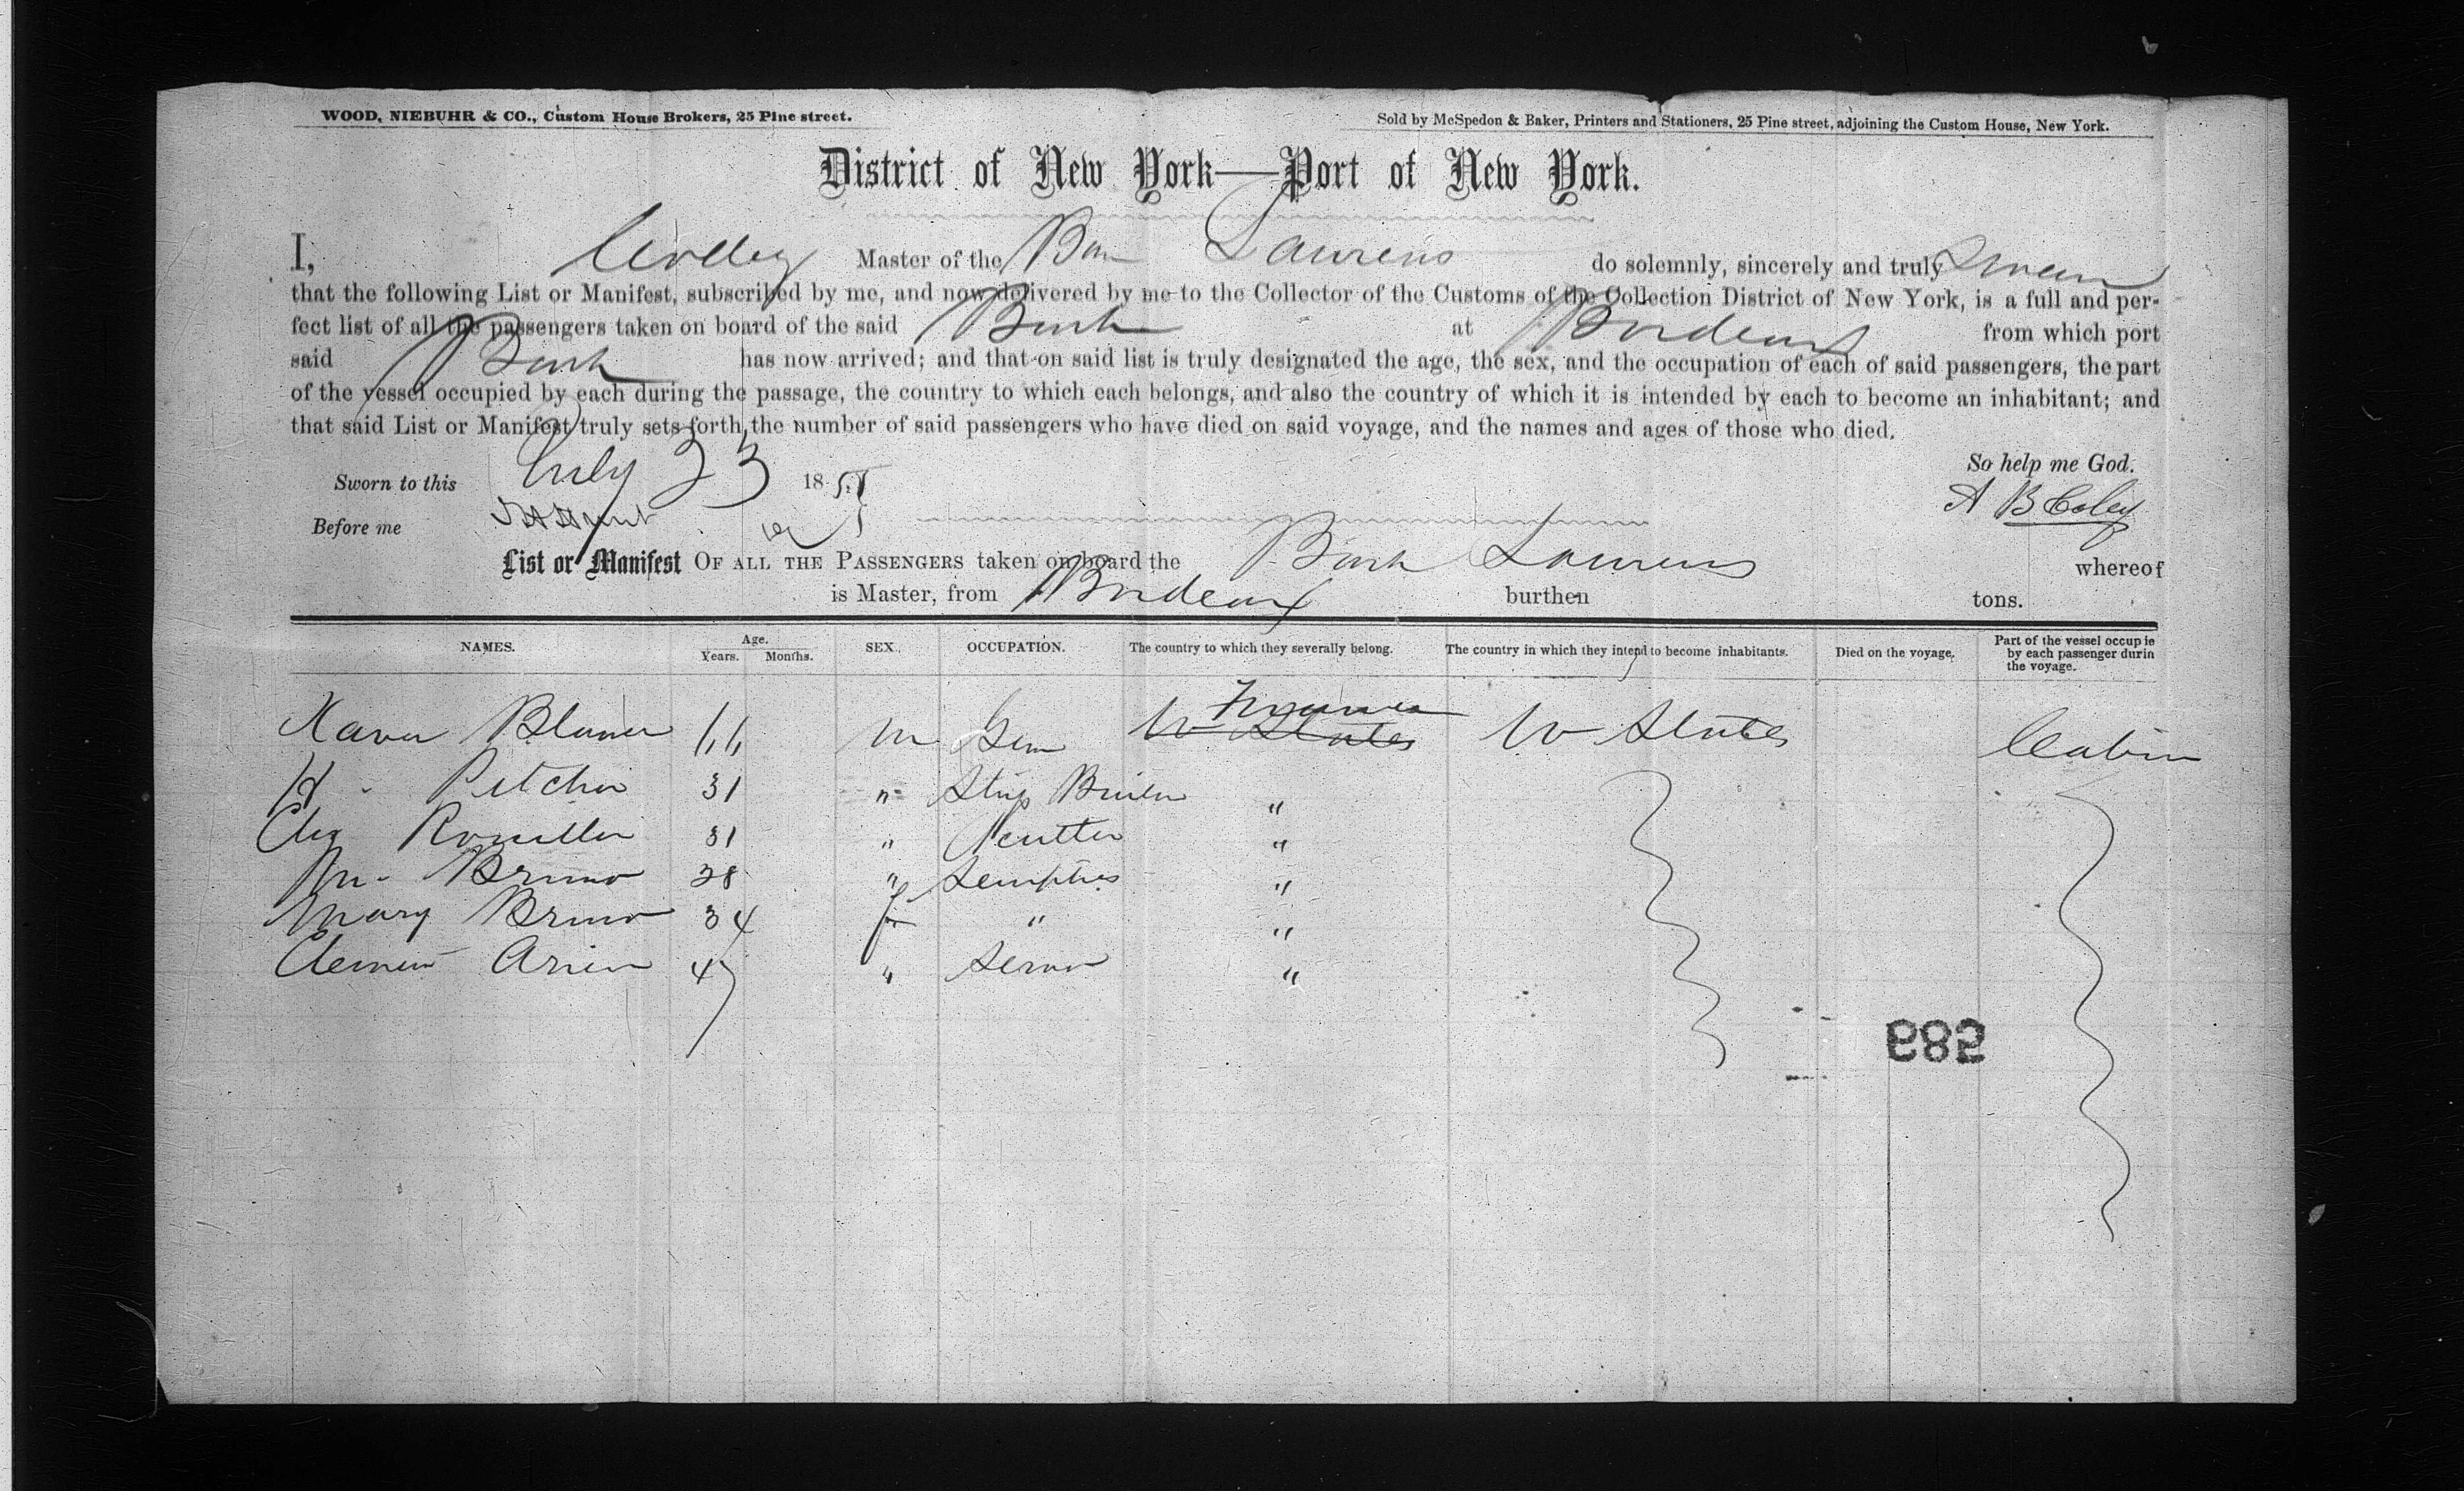 WOOD, NIEBUHR & CO., Custom House Brokers, 25 Pine street.
Sold by McSpedon & Baker, Printers and Stationers, 25 Pine street, adjoining the Custom House, New York.
District of New York—Port of New York.
I, Master of the Laurens do solemnly, sincerely and truly Swear
that the following List or Manifest, subscribed by me, and now delivered by me to the Collector of the Customs of the Collection District of New York, is a full and per-
fect list of all the passengers taken on board of the said Bark at Bordeaux from which port
said Bark has now arrived; and that on said list is truly designated the age, the sex, and the occupation of each of said passengers, the part
of the vessel occupied by each during the passage, the country to which each belongs, and also the country of which it is intended by each to become an inhabitant; and
that said List or Manifest truly sets forth the number of said passengers who have died on said voyage, and the names and ages of those who died.
So help me God.
Sworn to this July 23 1851
A B Coley
Before me
List or Manifest OF ALL THE PASSENGERS taken on board the Bark Laurens whereof
is Master, from Bordeaux burthen tons.
NAMES. Age. Years. Months. SEX. OCCUPATION. The country to which they severally belong. The country in which they intend to become inhabitants. Died on the voyage. Part of the vessel occupie by each passenger durin the voyage.
M France U States U States Cabin
H - 31 " "
31 " "
Bruno 28 " "
Mary Bruno 34 f " "
Arien 47 " "
685